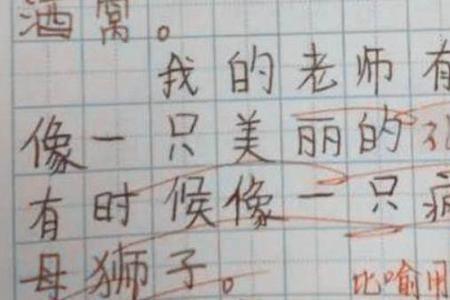 酒窝。
我的老师有
像一只美丽的
有时候像一只疯
母狮子。
比喻用